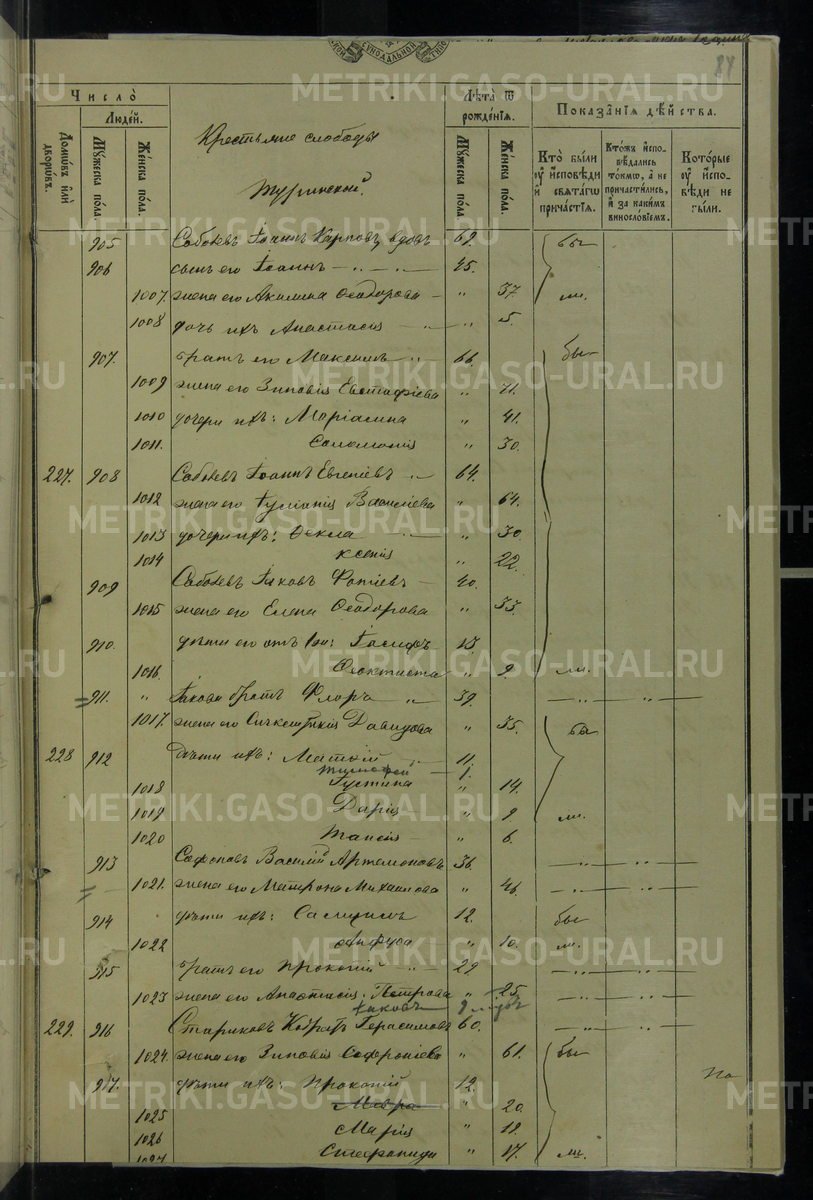 METRIKI.GASO-URAL.RU
84
Число̀
Людей.
Домѡвъ или дворѡвъ.
Мꙋжеска пола.
Женска пола.
Крестьяне слободы
Туринской.
Лѣта ѿ рождéнїѧ.
Мꙋжеска пола.
Женска пола.
Показанїѧ дѣйства.
Кто̀ были оу исповѣди и свѧтагѡ причастїѧ.
Ктожъ исповѣдались токмѡ, а не причастились, и за какимъ винословїемъ.
Которые оу исповѣди не были.
905 Соболевъ Іоаннъ Карповъ, вдовъ 69. бы
906 сынъ его Іоаннъ 45.
1007. жена его Акилина Ѳеодорова " 37 ли.
1008 дочь ихъ Анастасія " 5.
907. братъ его Максимъ 66. бы
1009 жена его Зиновія Евстафіева " 71.
1010 дочери ихъ: Маріамна " 41.
1011. Соломонія " 30.
227. 908 Соболевъ Іоаннъ Евгеніевъ 64.
1012 жена его Іуліанія Васильева " 64.
1013 дочери ихъ: Ѳекла 30.
1014 Ксенія " 22.
909 Соболевъ Іаковъ Фотіевъ 40.
1015 жена его Елена Ѳеодорова " 33.
910. дѣти его отъ Іосифъ 13
1016. Ѳеоктиста " 9. ли.
911. " Іакова братъ Флоръ 39.
1017. жена его Давидова " 35. бы
228 912 дѣти ихъ: Матѳій 11.
Тимофей 1.
1018 Іустина " 14.
1019 Дарія " 9. ли.
1020 Таисія " 6.
913 Софоновъ Василій Артемоновъ 36.
1021. жена его Матрона Михаилова " 46.
914 дѣти ихъ: 12. бы
1022 Анфуса " 10. ли.
915 братъ его Прокопій 29
1023 жена его Анастасія Петрова " 25
Іаковъ 9 мѣс
229. 916 Стариковъ Кодратъ Герасимовъ 60.
1024. жена его Зиновія Софроніева " 61. бы
917. дѣти ихъ: Прокопій 12. По
1025 Мавра " 20.
1026 Марія " 19.
1027 Стефанида " 17. ли.